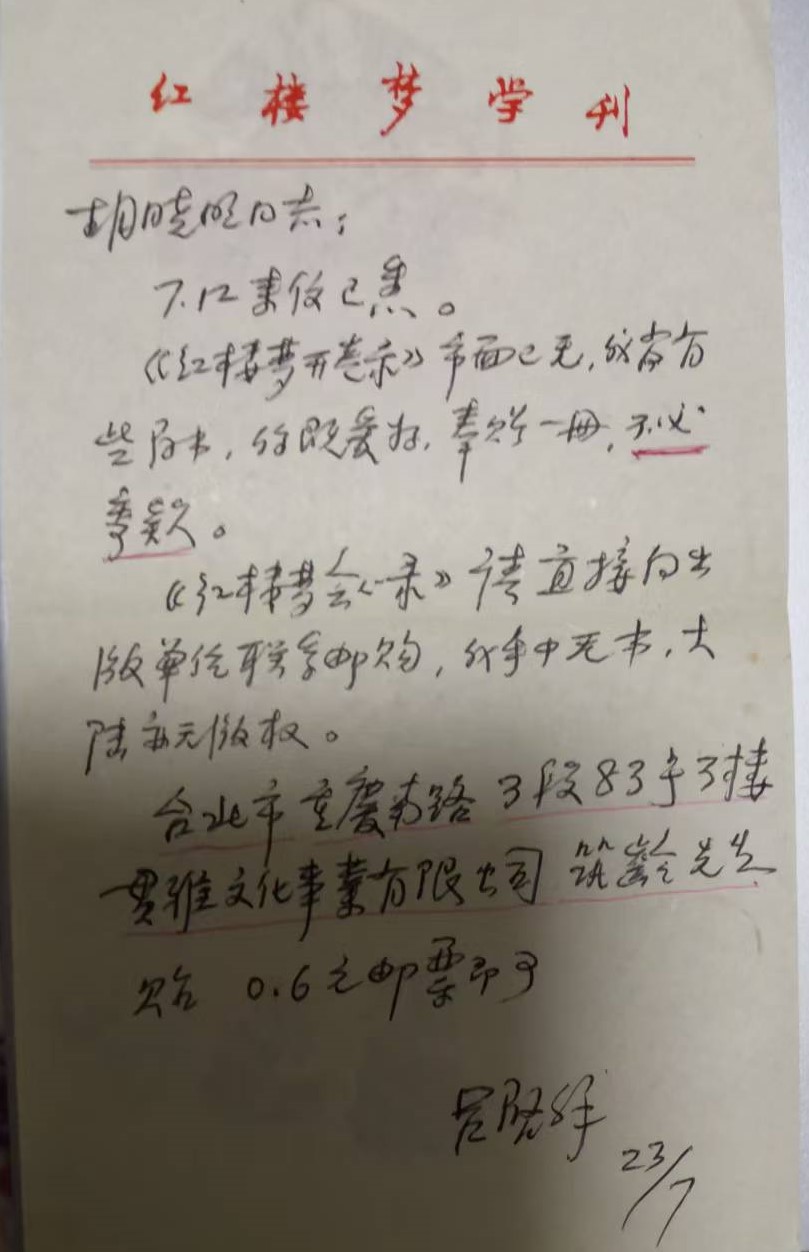 红楼梦学刊
胡晓明同志：
7.12来信已悉。
《红楼梦开卷录》市面已无，我尚有
些存书，你既爱好，奉赠一册，不必
寄款。
《红楼梦会心录》请直接向出
版单位联系邮购，我手中无书，大
陆亦无版权。
台北市重慶南路3段83号3楼
贯雅文化事業有限公司 筑龄先生
贴 0.6元邮票即可
吕启祥
23/7